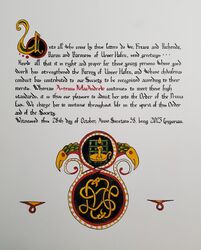 Unto all who come by these letters do we, Tvrann and Richenda,
Baron and Baroness of Unser Hafen, send greetings.
Know all that it is right and proper for those young persons whose good
deeds has strengthened the Barony of Unser Hafen, and whose chivalrous
conduct has contributed to our Society to be recognized according to their
merits. Whereas MacAndrew continues to meet these high
standards, it is thus our pleasure to admit her into the Order of the
We charge her to continue throughout life in the spirit of this Order
and of the Society.
Witnessed this 28th day of October, Anno Societatis 58, being 2023 Gregorian.